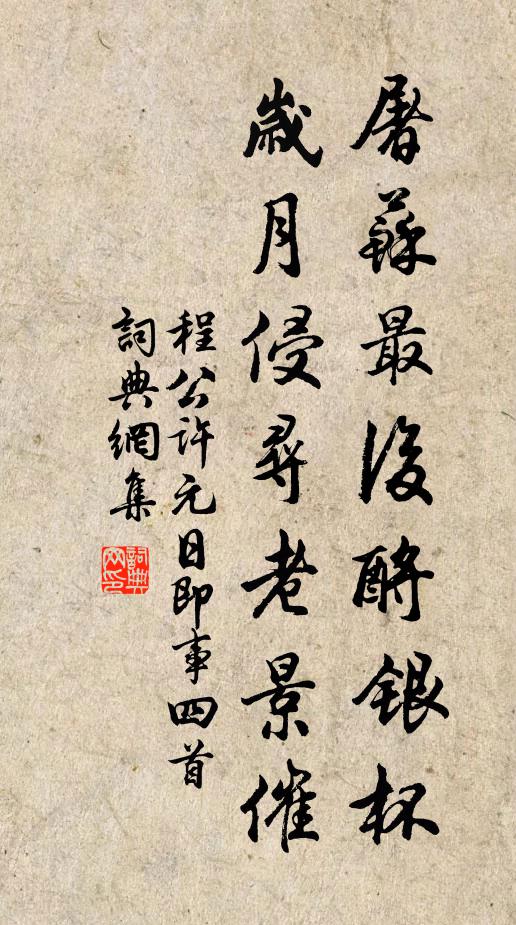 屠蘇最後酹銀杯
歲月侵尋老景催
程公許元日即事四首
詞典網集
詞典网印